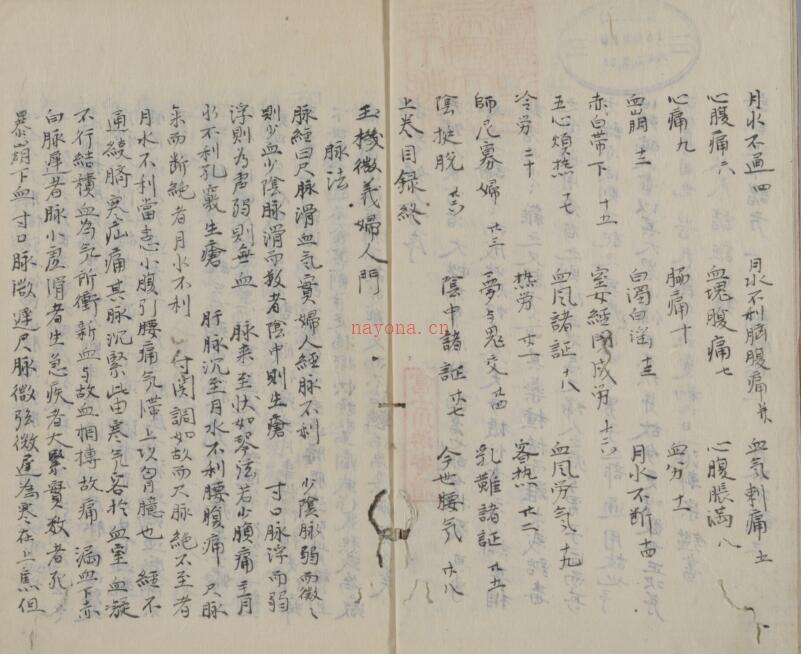 月水不通 四　月水不利臍腹痛 并　血気刺痛 五
心腹痛 六　血塊腹痛 七　心腹脹満 八
心痛 九　腸痛 十　血分 十一
血崩 十二　白濁白淫 十三　月水不断 十四
赤白帯下 十五　室女経閉成労 十六
五心煩熱 十七　血風諸証 十八　血風労気 十九
冷労 二十　熱労 廿一　客熱 廿二
師尼寡婦 廿三　夢与鬼交 廿四　乳難諸証 廿五
陰挺脱 廿六　陰中諸証 廿七　今世腰気 廿八
上巻目録終
玉機微義婦人門
脈法
脈経曰尺脈滑血気實婦人経脈不利　少陰脈弱而微ゝ
則少血少陰脈滑而数者陰中則生瘡　寸口脈浮而弱
浮則為虚弱則無血　脈来至状如琴弦若少腹痛主月
水不利孔竅生瘡　肝脈沉至月水不利腰腹痛　尺脈
来而断絶者月水不利　寸関調如故而尺脈絶不至者
月水不利當患小腹引腰痛気滞上以胷臆也　経不
通繞臍寒疝痛其脈沉緊此由寒気客於血室血凝
不行結積血為気所衝新血与故血相搏故痛　漏血下赤
白脈遅者脈小虚滑者生急疾者大緊實数者死
暴崩下血寸口脈微遅尺脈微弦微遅為寒在上焦但
nayona.cn